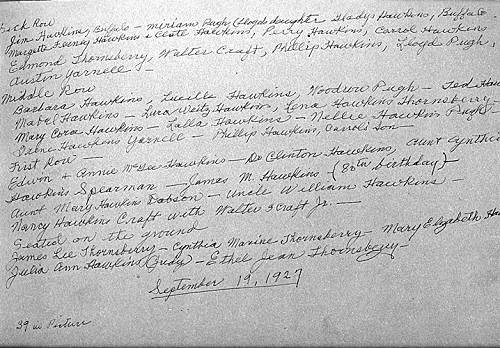 Back Row
Jim Hawkins, Buffalo - Miriam Pugh (Lloyds daughter Gladys Hawkins, Buffalo
Margette Feeney Hawkins & Cleste Hawkins, Perry Hawkins, Carrol Hawkins
Edmond Thornsberry, Walter Craft, Phillip Hawkins, Lloyd Pugh,
Austin Yarnell -
Middle Row
Barbara Hawkins - Lucille Hawkins, Woodrow Pugh - Ted Haw
Mabel Hawkins - Lura Weitz Hawkins, Lena Hawkins Thornsberry
Mary Cora Hawkins - Zalla Hawkins - Nellie Hawkins Pugh -
Irene Hawkins Yarnell - Phillip Hawkins, Carrols Son -
First Row -
Edwn & Annie McGee Hawkins - De Clinton Hawkins, Aunt Cynthia
Hawkins Spearman - James M. Hawkins - (80th birthday) -
Aunt Mary Hawkins Dobson - Uncle William Hawkins -
Nancy Hawkins Craft with Walter Craft Jr. -
Seated on the ground
James Lee Thornsberry - Cynthia Maxine Thornsberry - Mary Elizabeth Ha
Julia Ann Hawkins (Judy) - Ethel Jean Thornsberry -
September 19, 1927
39 in Picture